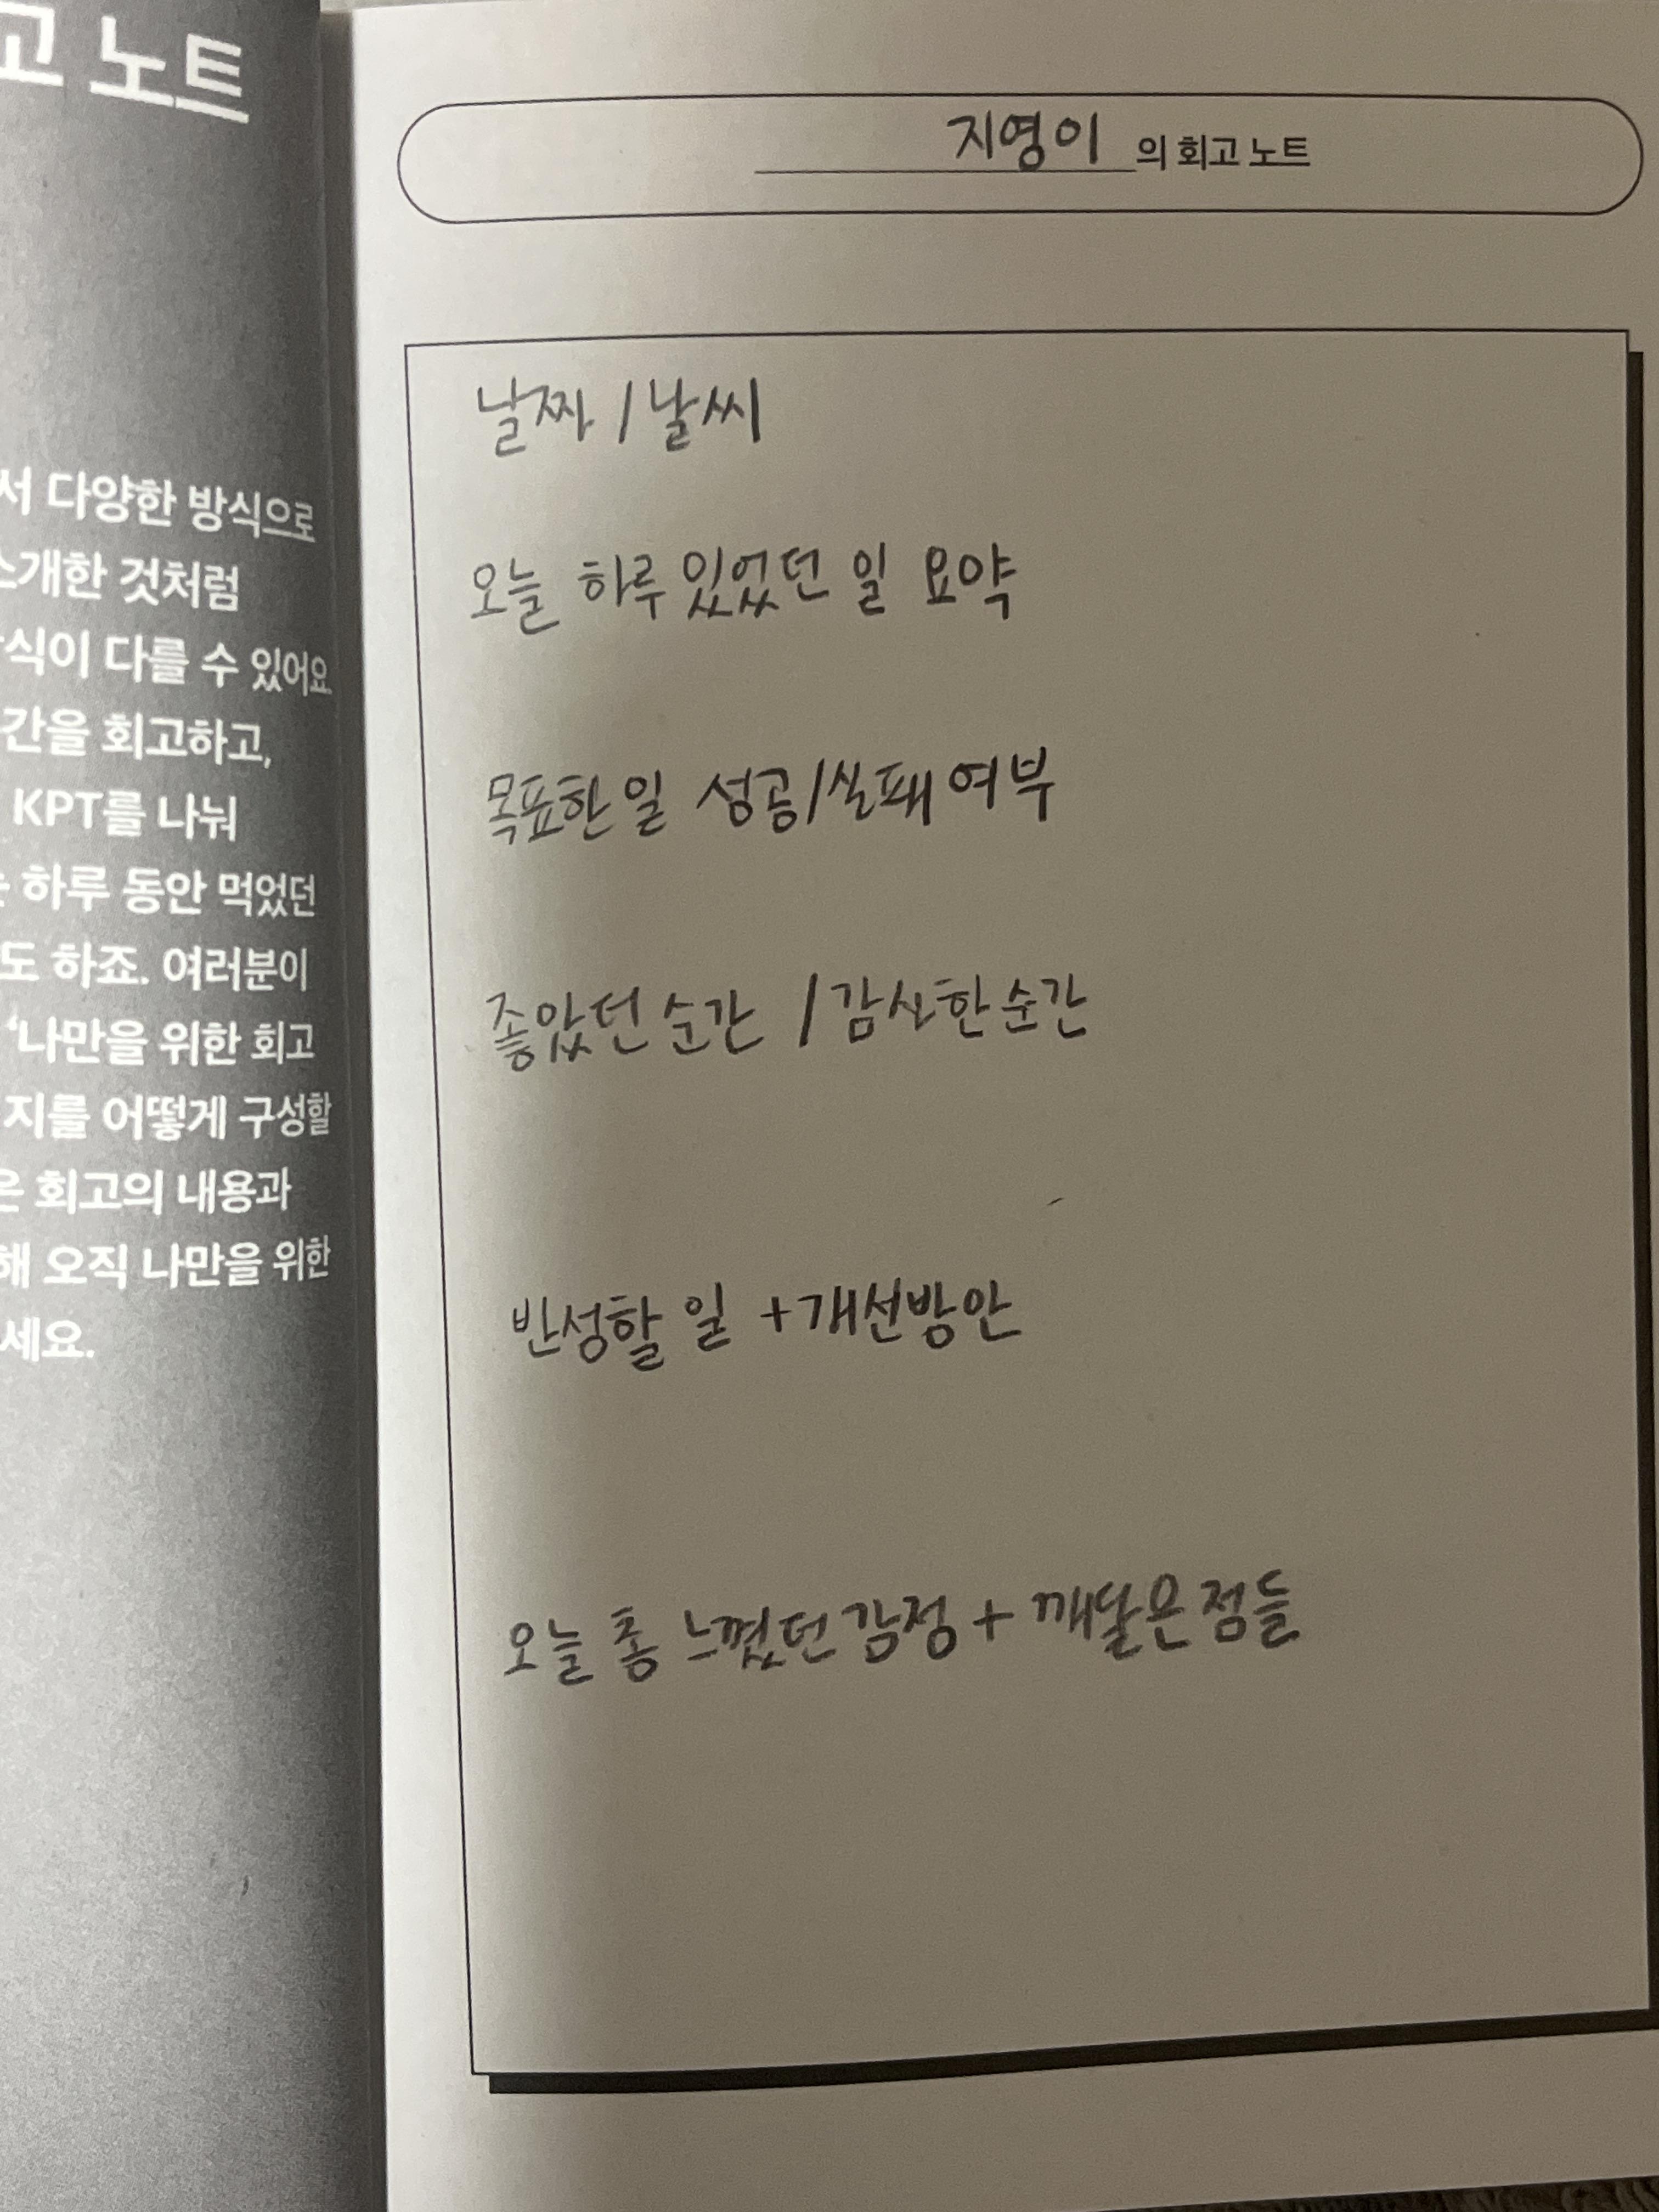 고 노트
서 다양한 방식으로
소개한 것처럼
식이 다를 수 있어요
간을 회고하고,
KPT를 나눠
하루 동안 먹었던
도 하죠. 여러분이
‘나만을 위한 회고
지를 어떻게 구성할
은 회고의 내용과
해 오직 나만을 위한
세요.
지영이의 회고 노트
날짜 / 날씨
오늘 하루 있었던 일 요약
목표한 일 성공/실패 여부
좋았던 순간 / 감사한 순간
반성할 일 + 개선방안
오늘 총 느꼈던 감정 + 깨달은 점들